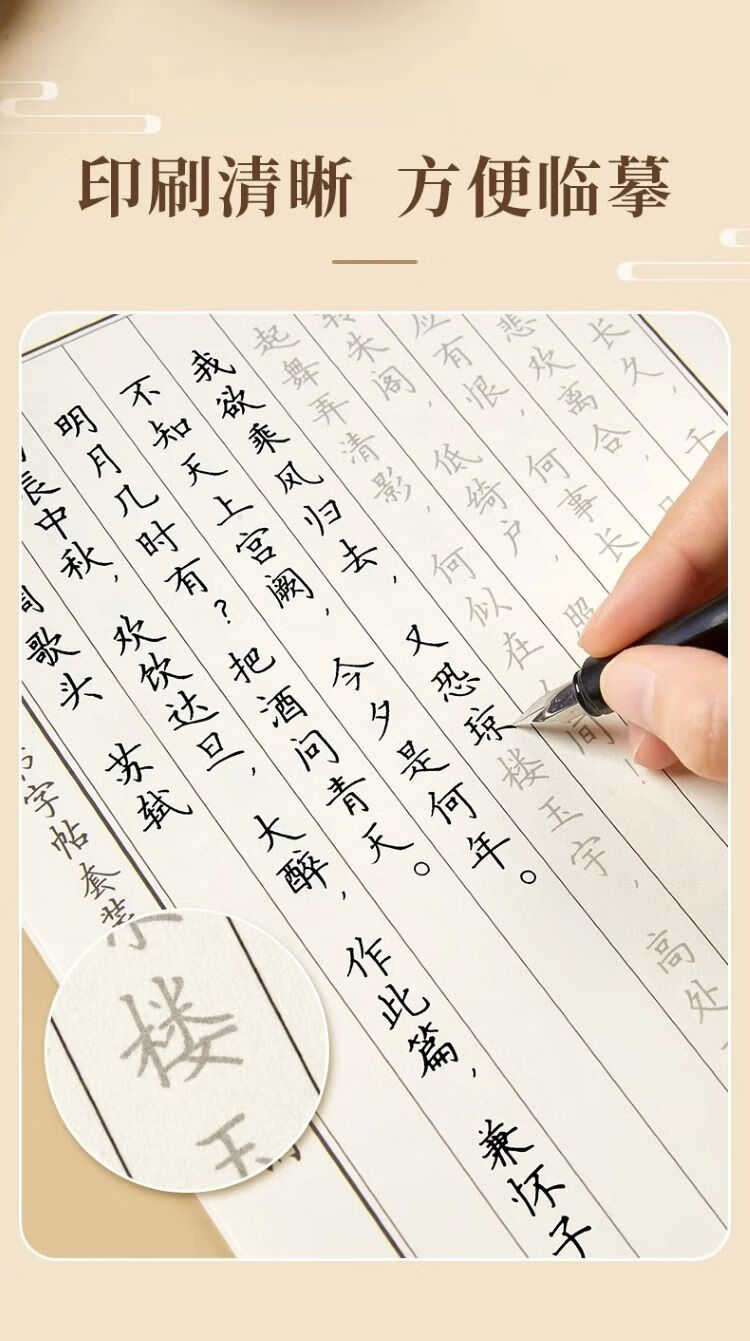 印刷清晰 方便临摹
字帖套装
调歌头 苏轼
辰中秋，欢饮达旦，大醉，作此篇，兼怀子
明月几时有？把酒问青天。
不知天上宫阙，今夕是何年。
我欲乘风归去，又恐琼楼玉宇，高处
起舞弄清影，何似在人间！
转朱阁，低绮户，照
应有恨，何事长
悲欢离合，
长久，千
楼玉